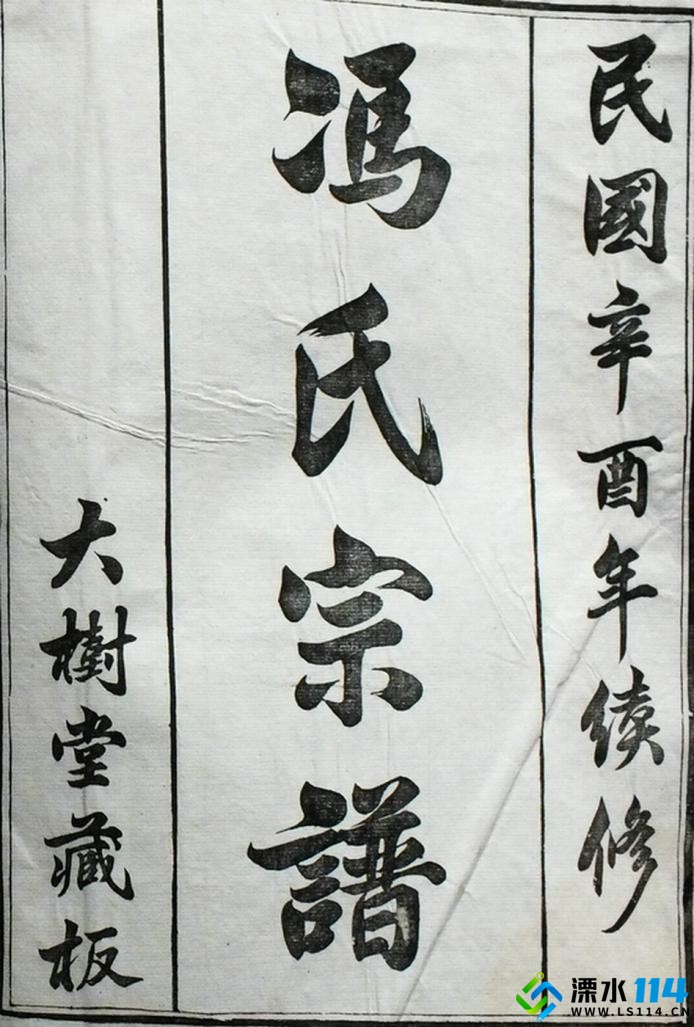 民國辛酉年續修
馮氏宗譜
大樹堂藏板
溧水114
WWW.LS114.CN